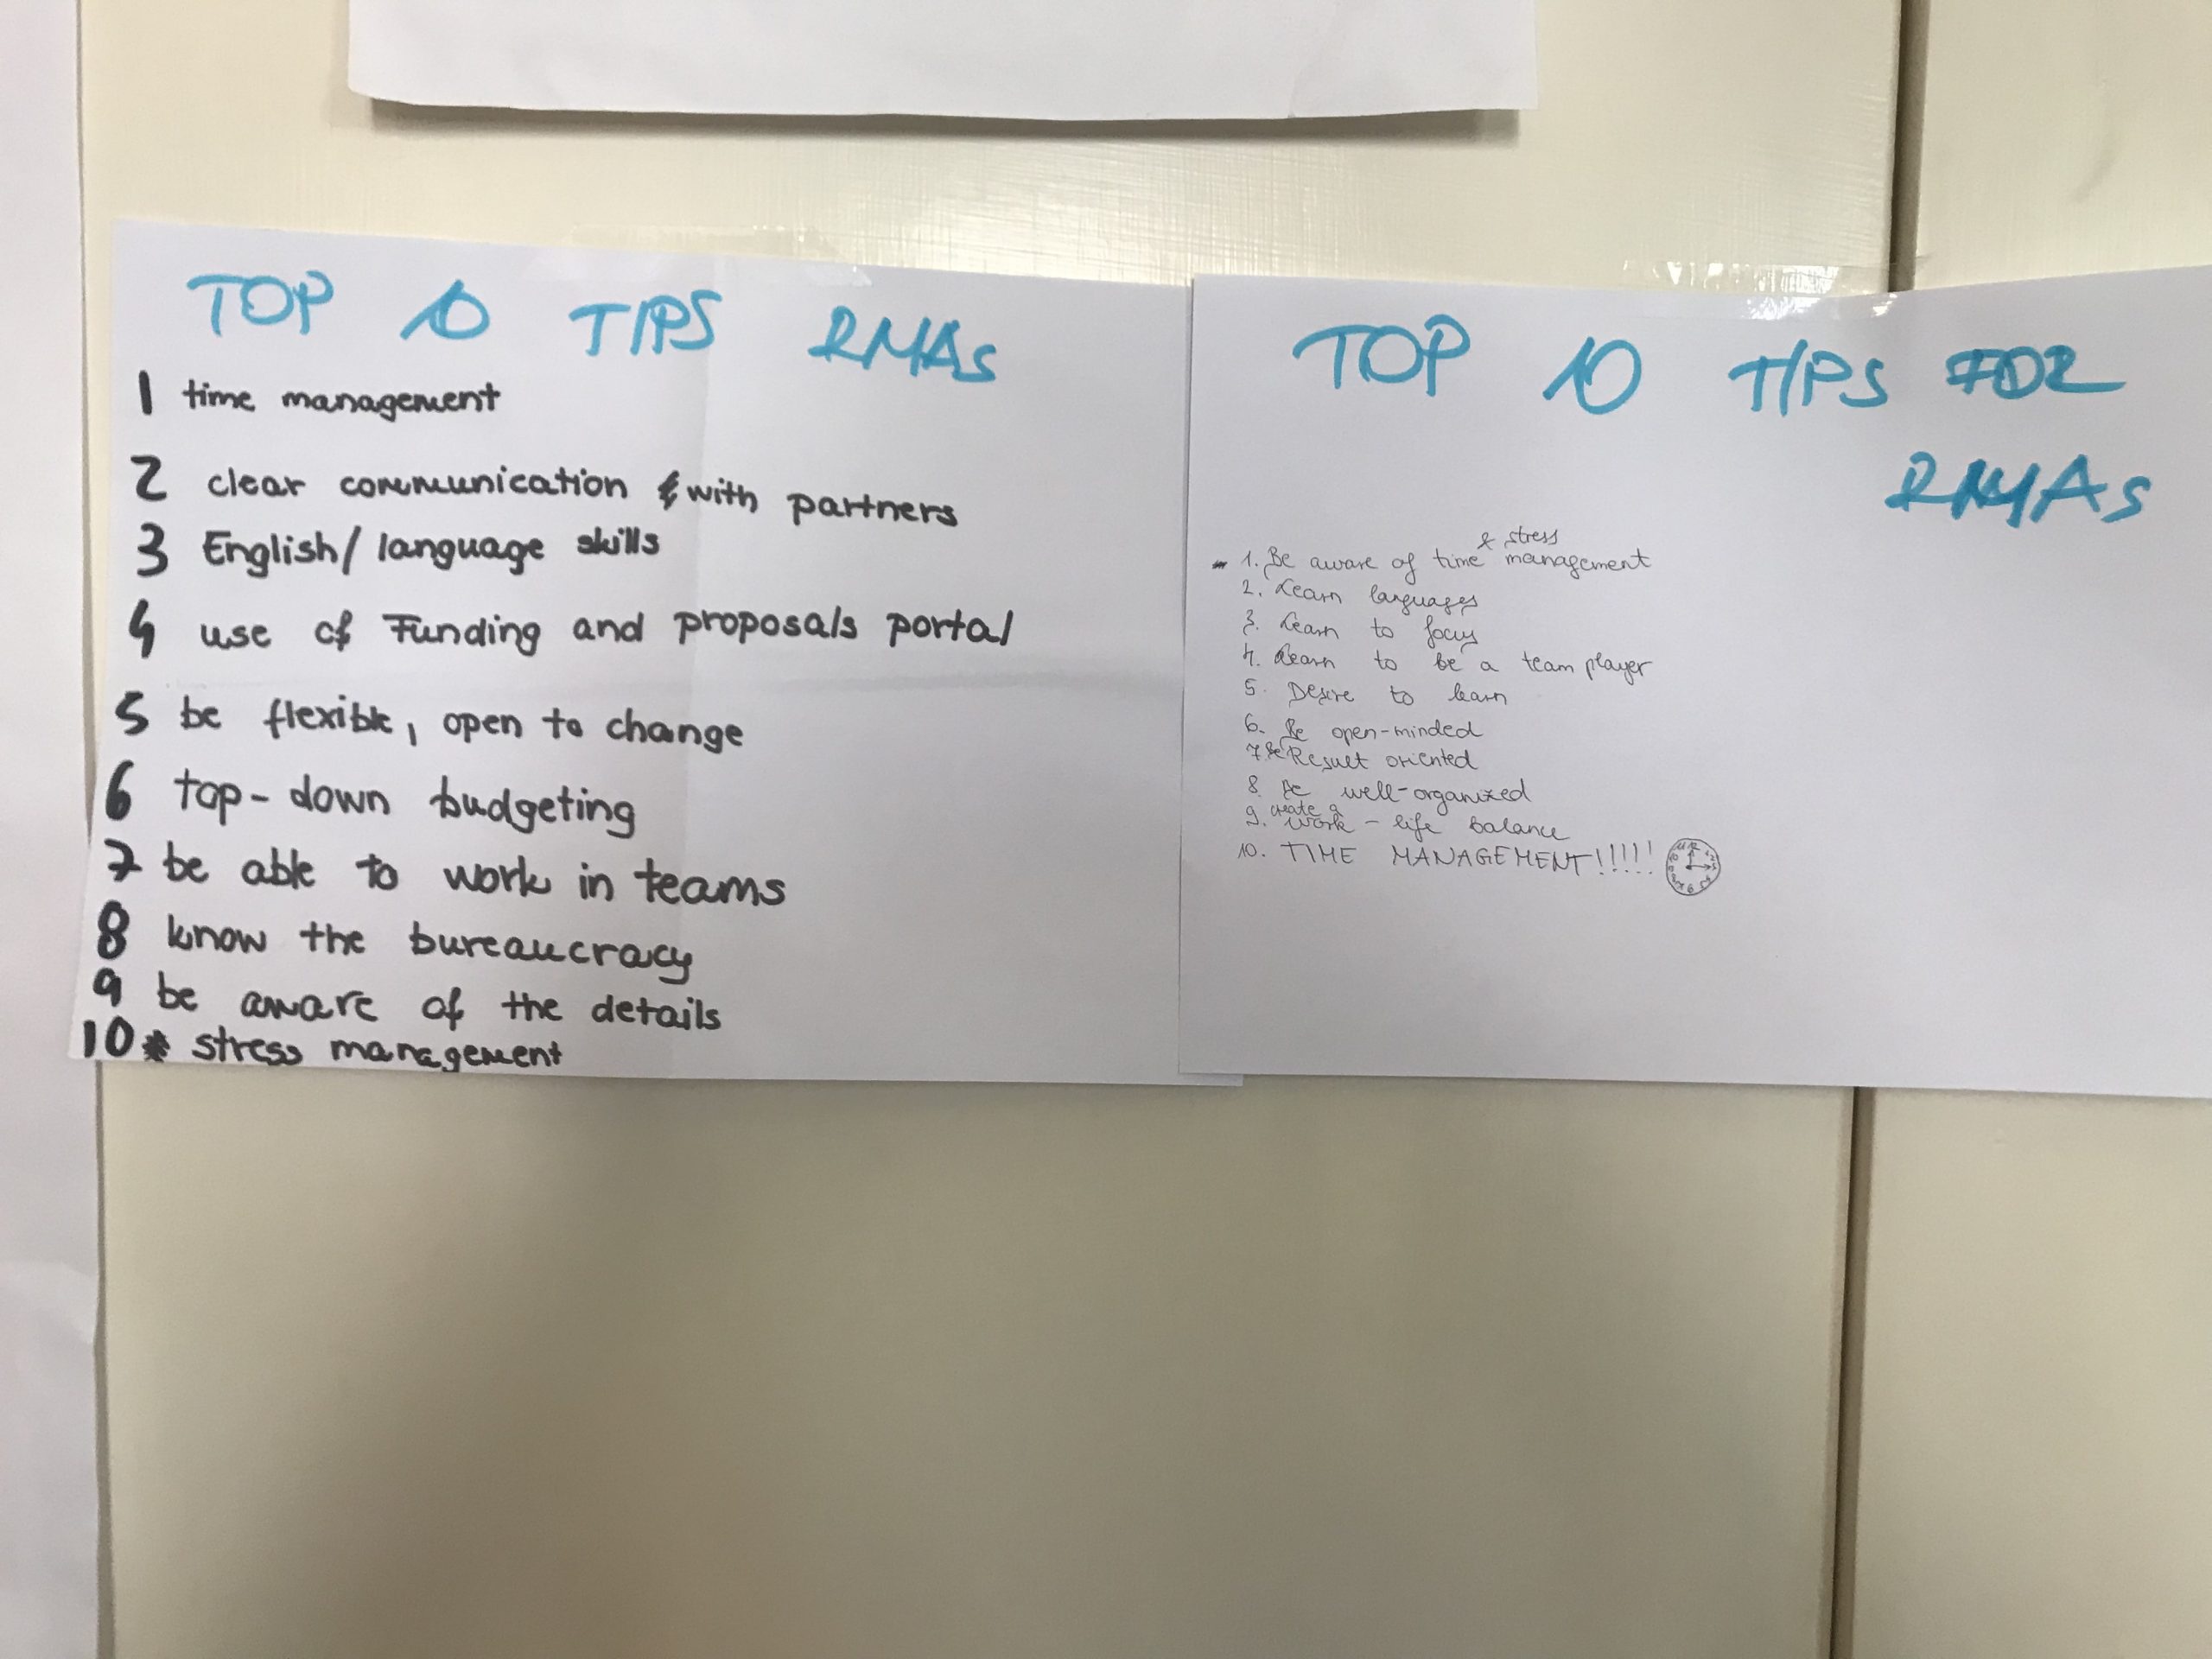 TOP 10 TIPS RMAs
1 time management
2 clear communication & with partners
3 English/language skills
4 use of Funding and proposals portal
5 be flexible, open to change
6 top-down budgeting
7 be able to work in teams
8 know the bureaucracy
9 be aware of the details
10 * stress management
TOP 10 TIPS FOR
RMAs
& stress
1. Be aware of time management
2. Learn languages
3. Learn to focus
4. Learn to be a team player
5. Desire to learn
6. Be open-minded
7. Be Result oriented
8. Be well-organized
create a
9. work-life balance
10. TIME MANAGEMENT!!!!!